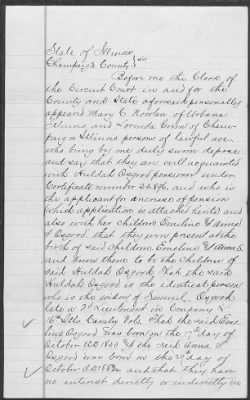 State of Illinois
Champaign County } ss
Before me the Clerk of
the Circuit Court in and for the
County and State aforesaid personally
appeared Mary C. Rowlan of Urbana
Illinois and Lovinda of Cham-
paign Illinois persons of lawful age
who being by me duly sworn depose
and say that they are well acquainted
with Huldah Osgood pensioner under
Certificate number and who is
the applicant for increase of pension
(which application is attached hereto) and
also with her children Emeline & Anna
Osgood. that they were present at the
birth of said children Emeline & Anna
and know them to be the children of
said Huldah Osgood. That the said
Huldah Osgood is the identical person
who is the widow of Samuel Osgood
late a 2d Lieutenant in Company L
Ills Cavalry Vols. That the said Eme-
line Osgood was born on the 17th day of
October A.D. & the said Anna
Osgood was born on the day of
October A.D. and that they have
no interest directly or indirectly in